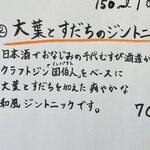 150ml
② 大葉とすだちのジントニ
日本酒でおなじみの千代むすび酒造か
クラフトジン国伯人をベースに
大葉とすだちを加えた爽やかな
和風ジントニックです。
70